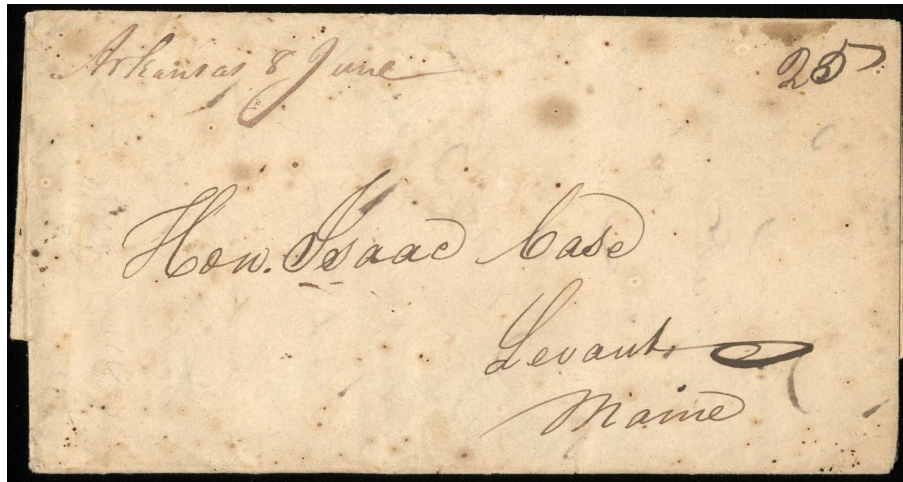 Arkansas 8 June
25
Hon. Isaac Case
Levant
Maine